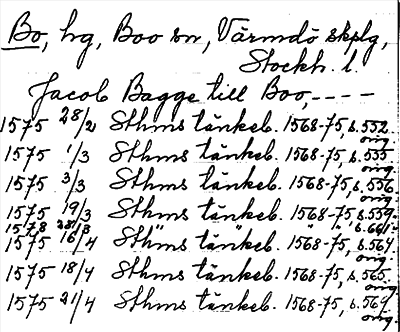 Bo, hg, Boo sn, Värmdö skplg,
Stockh. l.
Jacob Bagge till Boo, - - - -
1575 28/2 Sthms tänkeb. 1568-75, s. 552. orig.
1575 1/3 Sthms tänkeb. 1568-75, s. 555. orig.
1575 3/3 Sthms tänkeb. 1568-75, s. 556. orig.
1575 19/3 Sthms tänkeb. 1568-75, s. 559. orig.
1578 /3 " " " " s. 661.
1575 16/4 Sthms tänkeb. 1568-75, s. 564. orig.
1575 18/4 Sthms tänkeb. 1568-75, s. 565. orig.
1575 21/4 Sthms tänkeb. 1568-75, s. 569. orig.